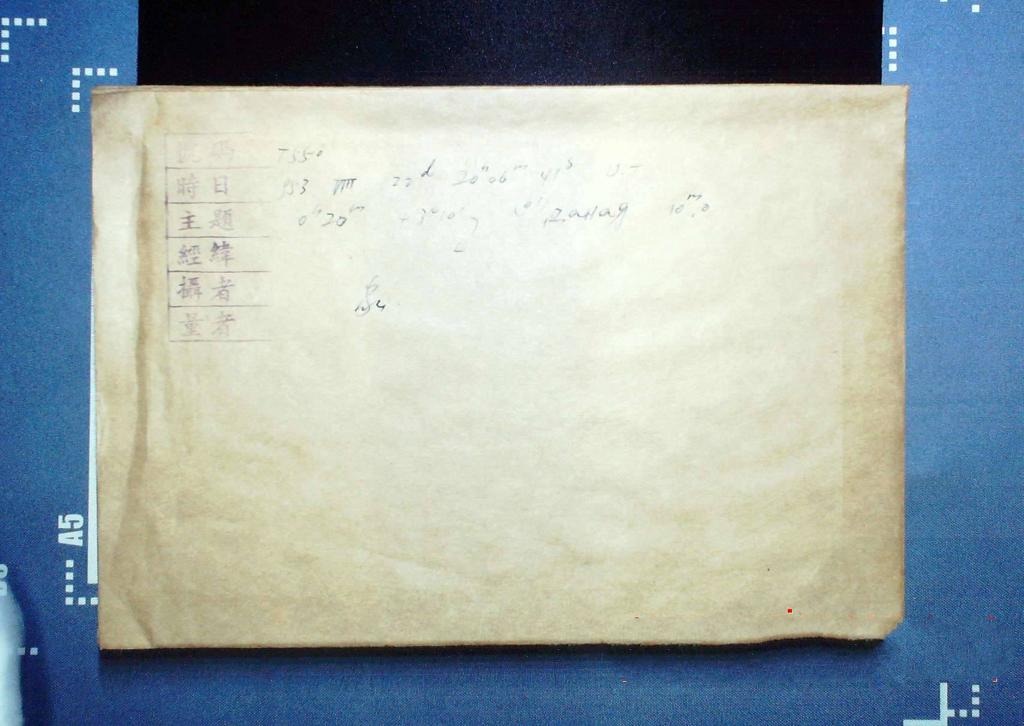 號碼 T550
時日 953 VIII 22ᵈ 20ʰ06ᵐ 41ˢ U.T
主題 0ʰ20ᵐ +3°10′
Даная 10ᵐ.0
經緯
攝者
量者
A5